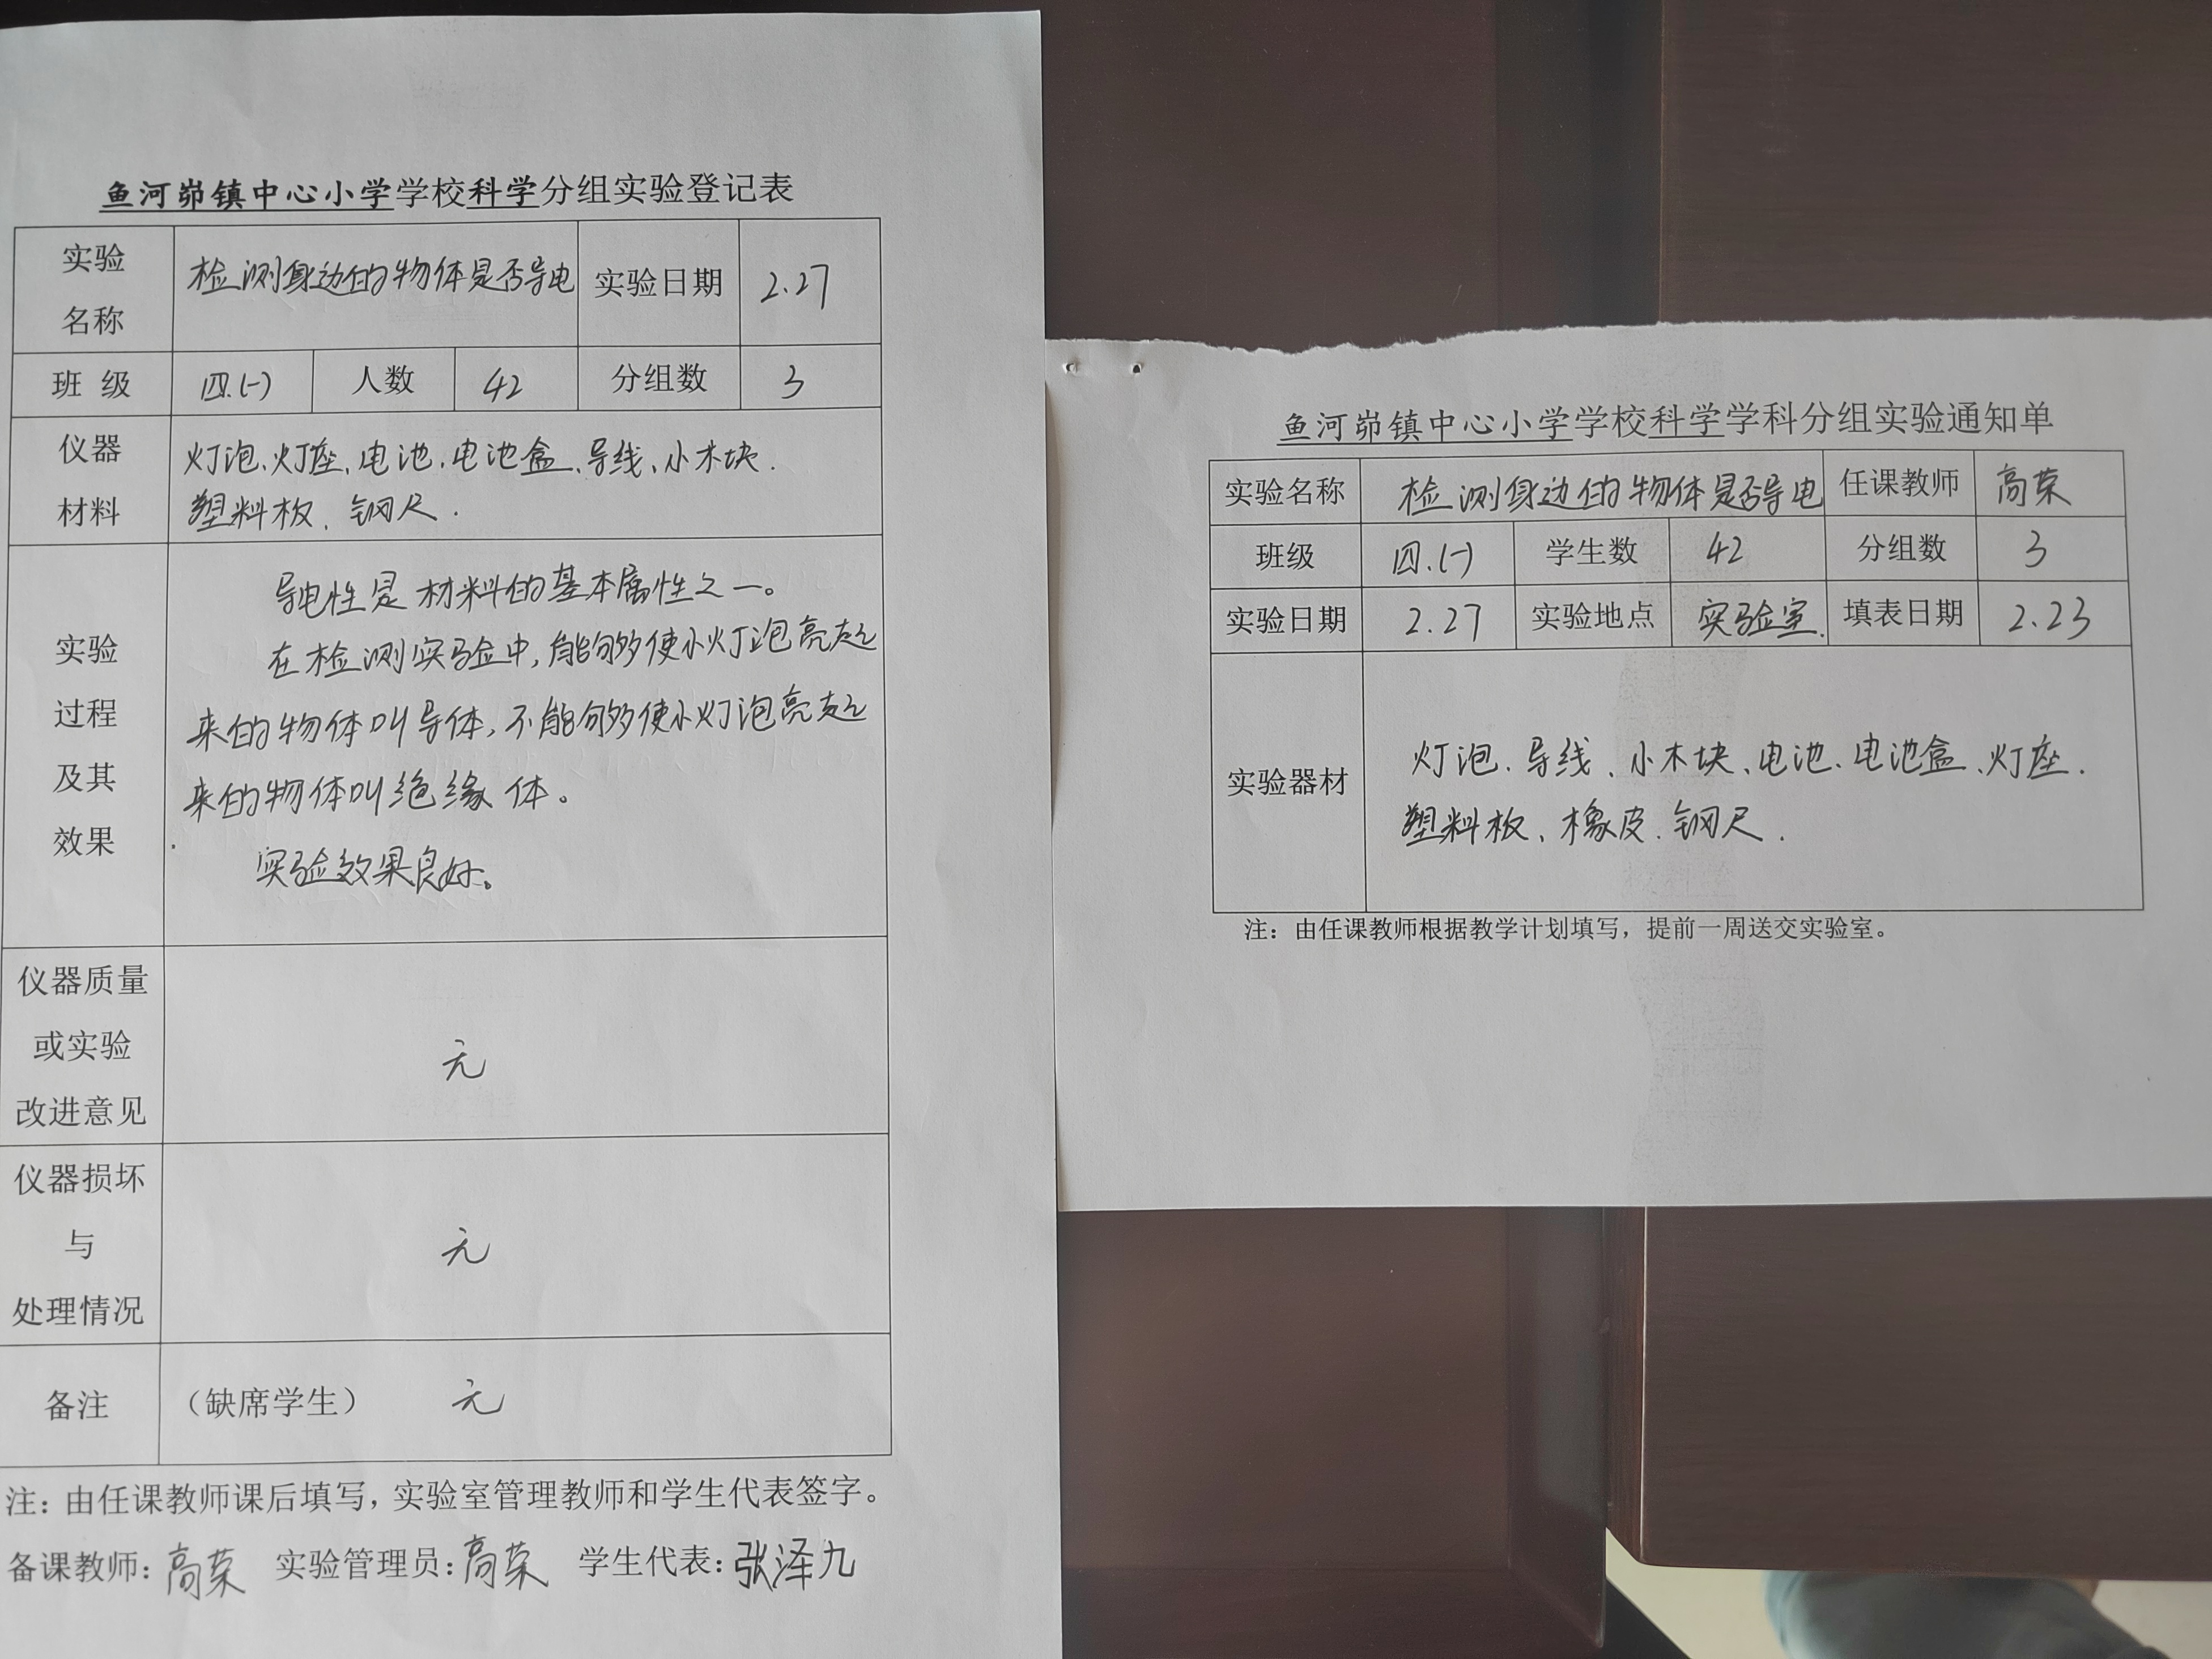 鱼河峁镇中心小学学校科学分组实验登记表
实验名称 检测身边的物体是否导电 实验日期 2.27
班 级 四.(一) 人数 42 分组数 3
仪器材料 灯泡、灯座、电池、电池盒、导线、小木块.
塑料板、钢尺.
实验过程及其效果
导电性是材料的基本属性之一。
在检测实验中,能够使小灯泡亮起
来的物体叫导体,不能够使小灯泡亮起
来的物体叫绝缘体。
实验效果良好。
仪器质量或实验改进意见 无
仪器损坏与处理情况 无
备注 (缺席学生) 无
注：由任课教师课后填写，实验室管理教师和学生代表签字。
备课教师：高荣 实验管理员：高荣 学生代表：张泽九
鱼河峁镇中心小学学校科学学科分组实验通知单
实验名称 检测身边的物体是否导电 任课教师 高荣
班级 四.(一) 学生数 42 分组数 3
实验日期 2.27 实验地点 实验室. 填表日期 2.23
实验器材 灯泡、导线、小木块、电池、电池盒、灯座.
塑料板、橡皮、钢尺.
注：由任课教师根据教学计划填写，提前一周送交实验室。